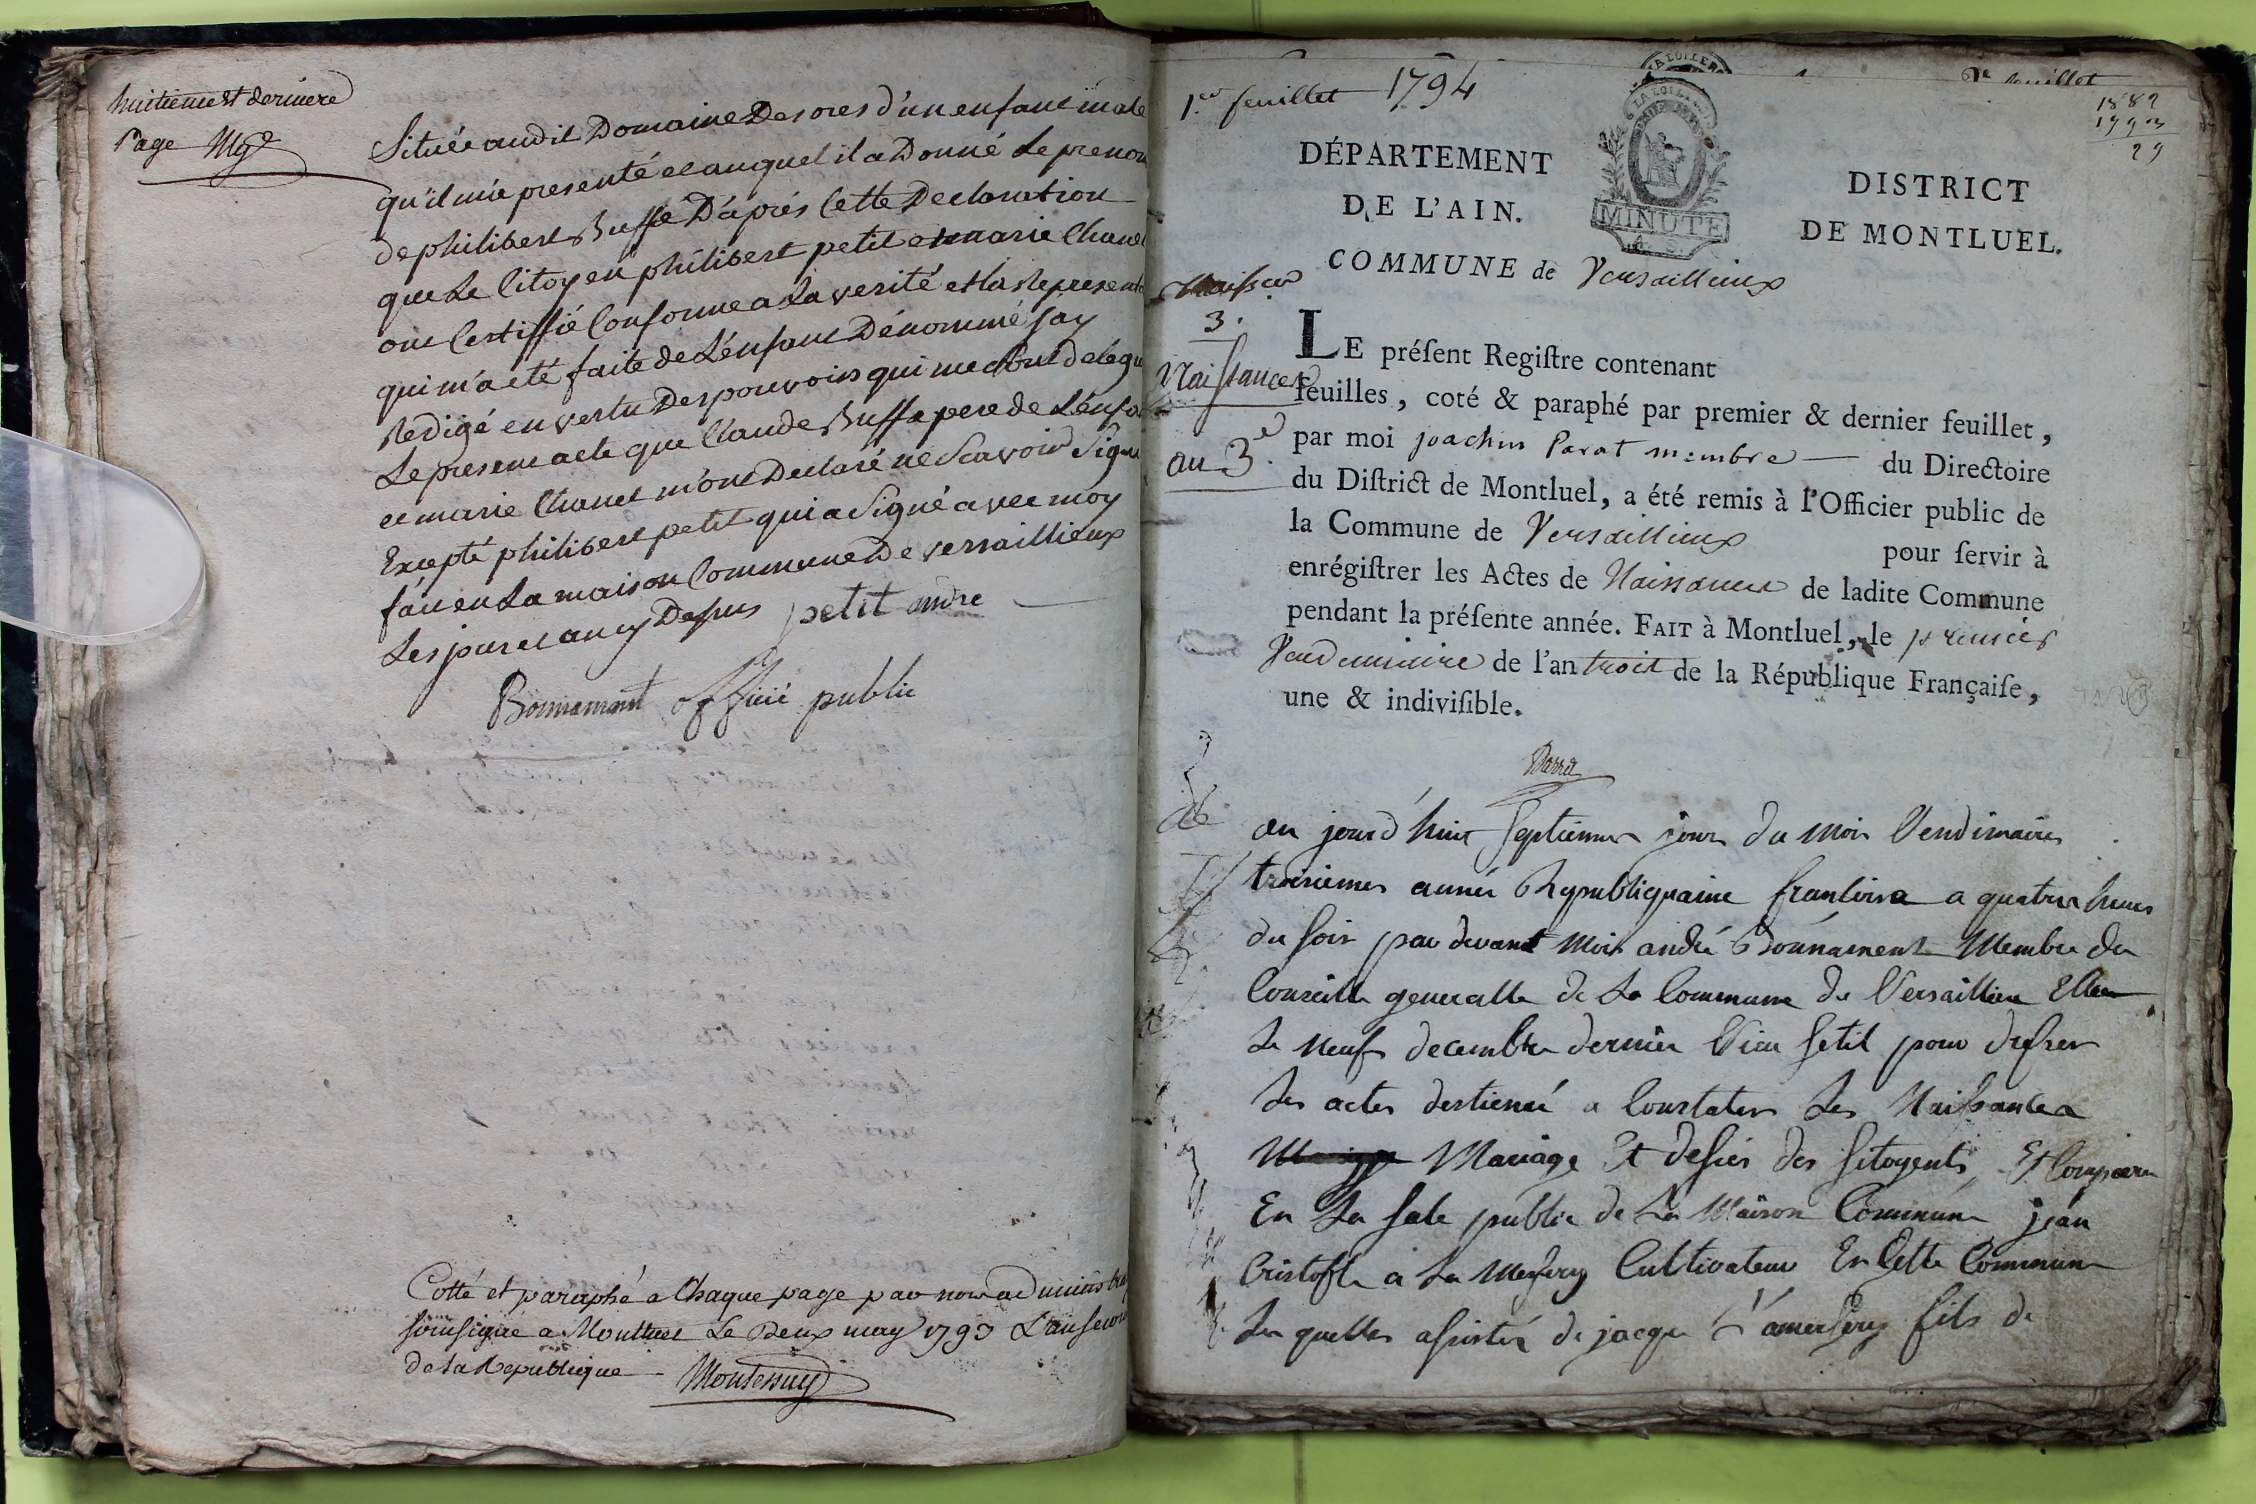 huitieme et derniere
Page Mgd
Située audit Domaine Des ores d'un enfant male
qu'il m'a presenté et auquel il a Donné Le prenom
de philibert Buffe D'après Cette Declaration
que Le Citoyen philibert petit et marie Chanel
ont Certiffié Conforme a La verité et la Represent
qui m'a eté faite de L'enfant Dénommé jay
Redigé en vertu Des pouvoirs qui me sont delegu
Le present acte que Claude Buffe pere de L'enfa
et marie Chanel m'ont Declaré ne Scavoir Signe
Excepté philibert petit qui a Signé avec moy
fait en La maison Commune De versaillieux
Les jour et an cy Dessus petit andre
Bonnamant officié public
Cotté et paraphé a Chaque page par nous administra
soussigné a Montluel Le Deux may 1793 L'an second
de la Republique Montessuy
1.er feuillet 1794
2e feuillet
1882
1793
29
DÉPARTEMENT
DE L'AIN.
MINUTE
DISTRICT
DE MONTLUEL.
COMMUNE de Versaillieux
3.
Naissances
an 3e.
LE préſent Regiſtre contenant
feuilles, coté & paraphé par premier & dernier feuillet,
par moi joachim Parat membre du Directoire
du Diſtrict de Montluel, a été remis à l'Officier public de
la Commune de Versaillieux pour ſervir à
enrégiſtrer les Actes de Naissances de ladite Commune
pendant la préſente année. FAIT à Montluel, le premier
Vendemiaire de l'an troisl de la République Françaiſe,
une & indiviſible.
au jourd'huit septiemes jours du mois Vendimaires
troisiemes année Republiquaine francoise a quatres heures
du soir par devant Mois andré Bonnament Membre du
Conseille generalle de La Commune de Versaillieu Elleu
Le neufs decembre dernier Vieu setil pour dresser
Les actes destiené a Constater Les Naissances
Mariage Et desées des sitoyents, Et Comparu
En La sale public de La Maison Commune jean
Cristofle a La Mersery Cultivateur En Cette Commune
Les quelles assistés de jacque L'amersery fils de